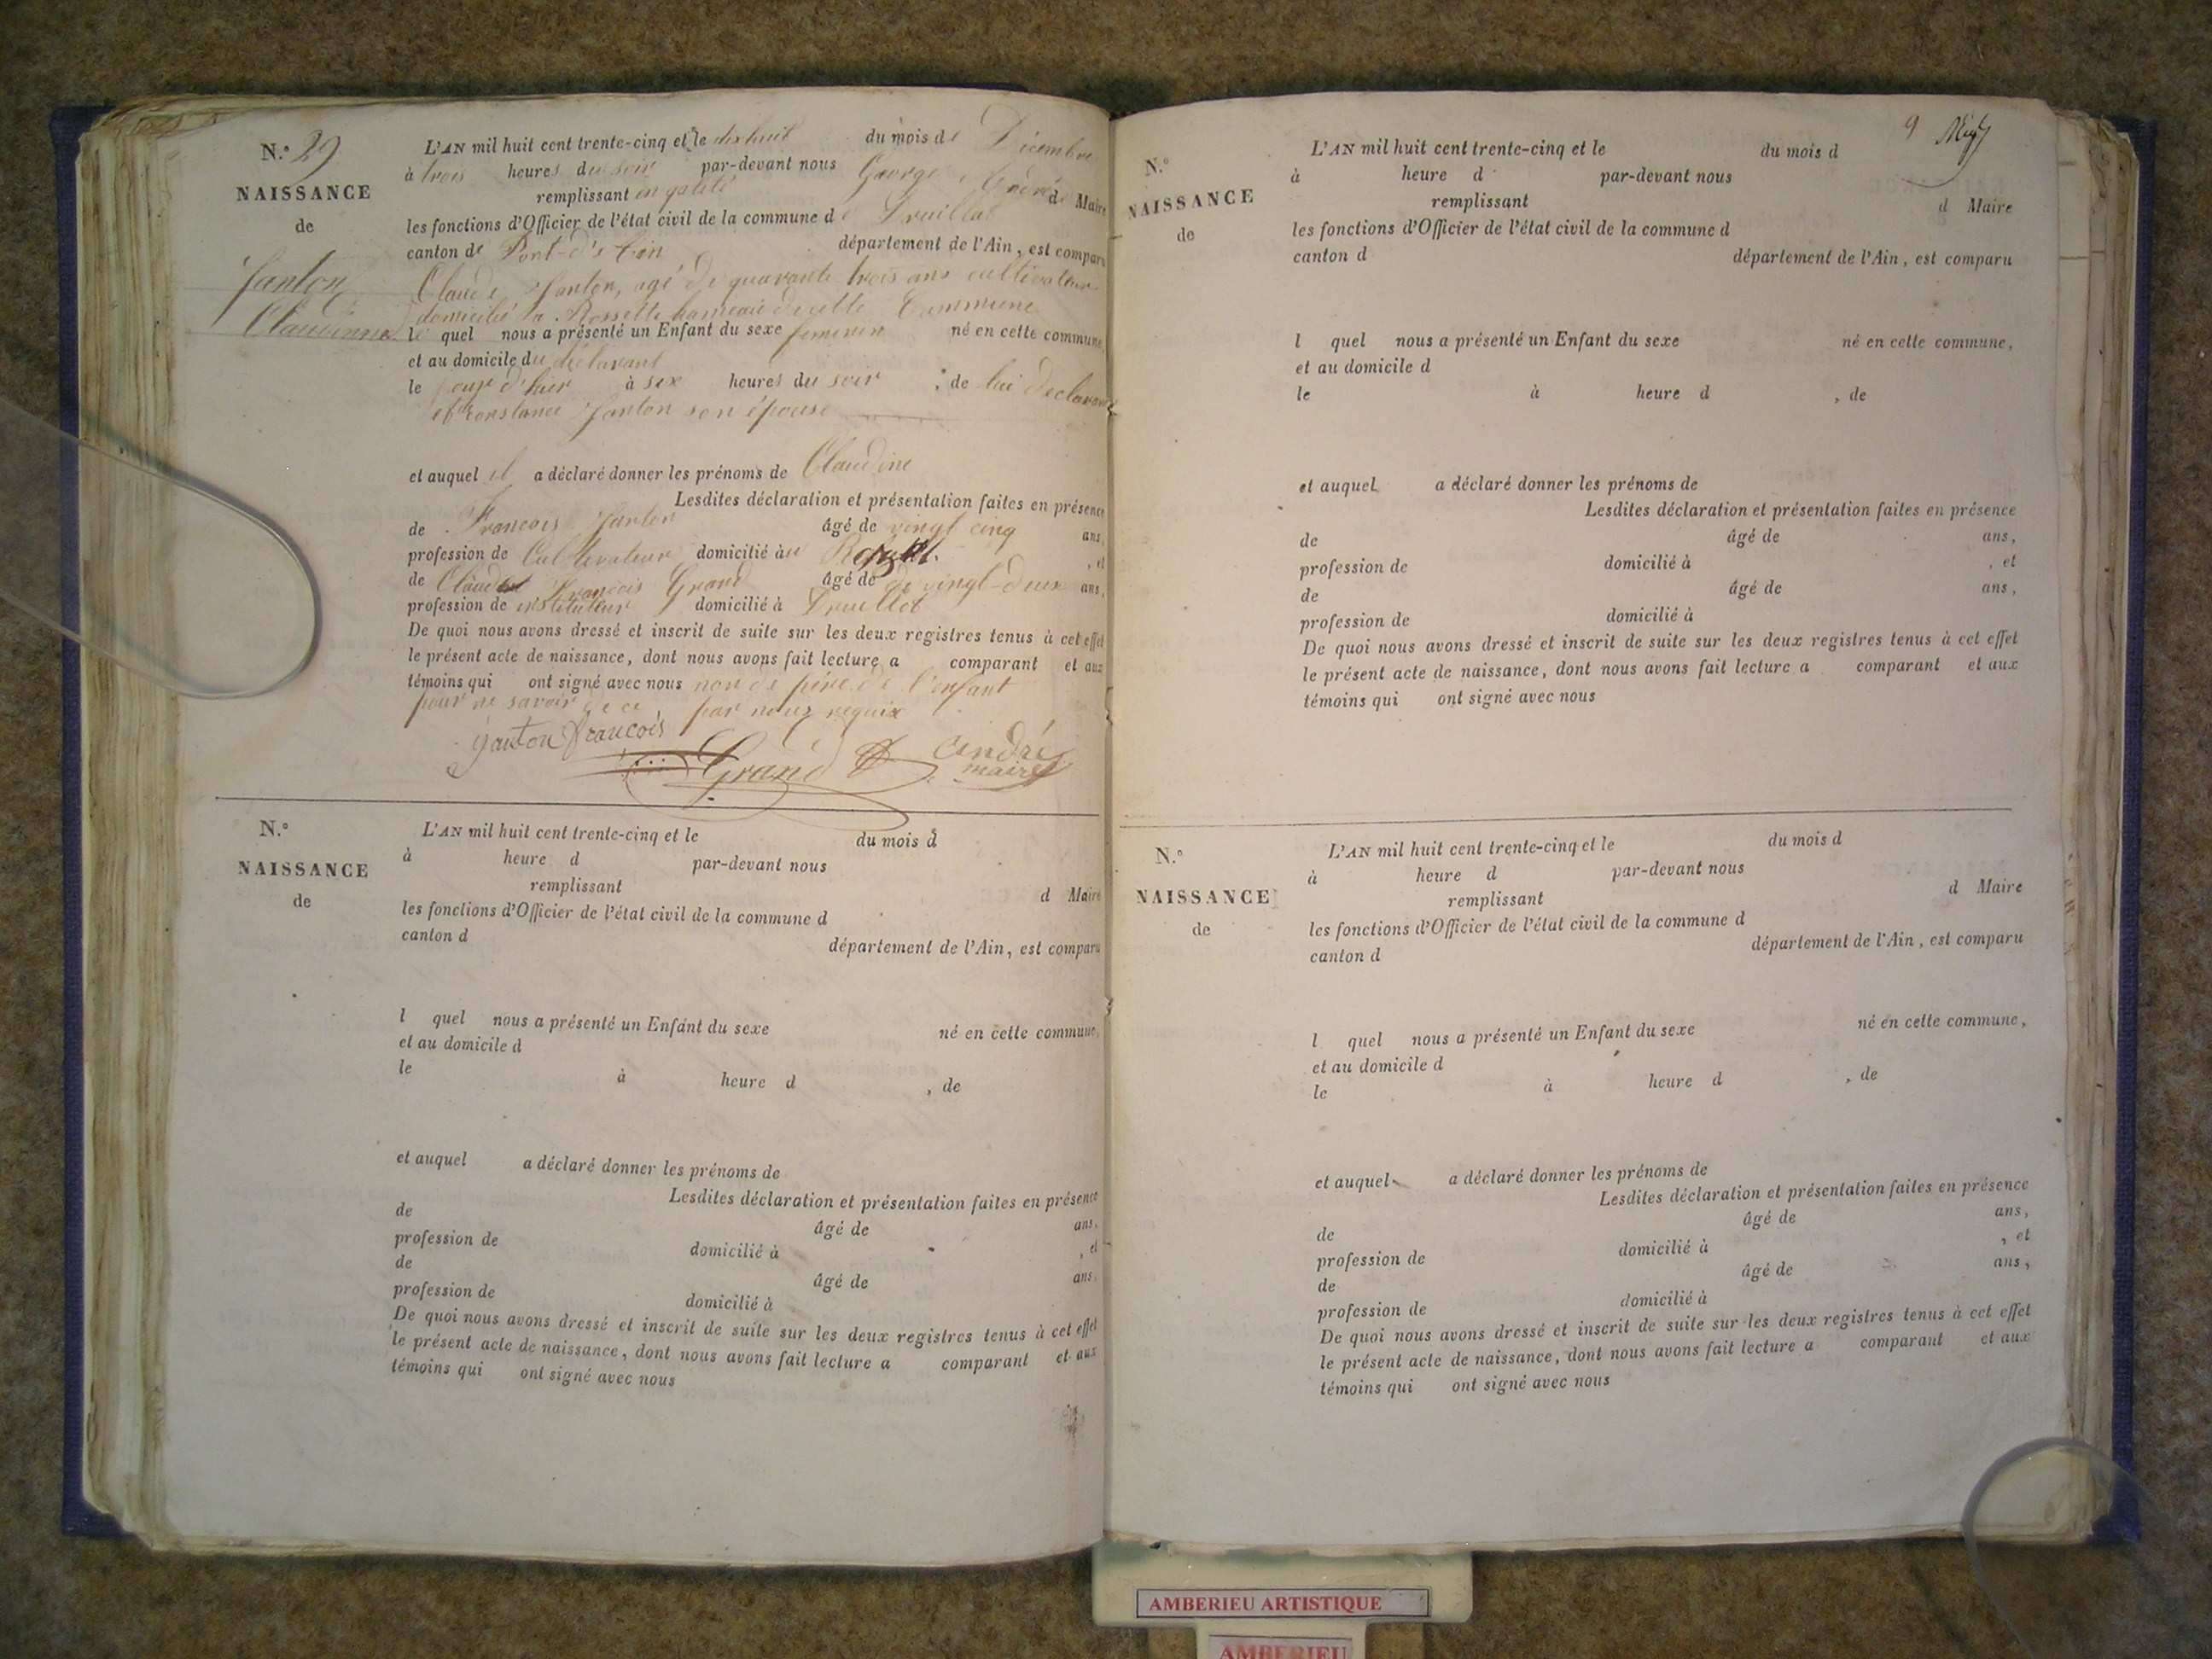 N.° 29
NAISSANCE
de
Janton
Claudine
L'AN mil huit cent trente-cinq et le dix huit du mois de Décembre
à trois heures du soir par-devant nous George André
remplissant en qalité de Maire
les fonctions d'Officier de l'état civil de la commune de Druillat
canton de Pont-d'Ain département de l'Ain, est comparu
Claude Janton, agé de quarante trois ans cultivateur
domicilié à Rossette hameau de cette Commune
le quel nous a présenté un Enfant du sexe feminin né en cette commune,
et au domicile du déclarant
le jour d'hier à six heures du soir , de lui declarant
et constance Janton son épouse
et auquel il a déclaré donner les prénoms de Claudine
Lesdites déclaration et présentation faites en présence
de Francois Janton âgé de vingt cinq ans,
profession de Cultivateur domicilié au , et
de Claude François Grand âgé de de vingt-deux ans,
profession de instituteur domicilié à Druillat
De quoi nous avons dressé et inscrit de suite sur les deux registres tenus à cet effet
le présent acte de naissance, dont nous avons fait lecture a comparant et aux
témoins qui ont signé avec nous non le père de l'enfant
pour ne savoir de ce par nous requix
janton francois
Grand
André
maire
N.°
NAISSANCE
de
L'AN mil huit cent trente-cinq et le du mois d
à heure d par-devant nous
remplissant d Maire
les fonctions d'Officier de l'état civil de la commune d
canton d département de l'Ain, est comparu
l quel nous a présenté un Enfant du sexe né en cette commune,
et au domicile d
le à heure d , de
et auquel a déclaré donner les prénoms de
Lesdites déclaration et présentation faites en présence
de âgé de ans,
profession de domicilié à , et
de âgé de ans,
profession de domicilié à
De quoi nous avons dressé et inscrit de suite sur les deux registres tenus à cet effet
le présent acte de naissance, dont nous avons fait lecture a comparant et aux
témoins qui ont signé avec nous
9
N.°
NAISSANCE
de
L'AN mil huit cent trente-cinq et le du mois d
à heure d par-devant nous
remplissant d Maire
les fonctions d'Officier de l'état civil de la commune d
canton d département de l'Ain, est comparu
l quel nous a présenté un Enfant du sexe né en cette commune,
et au domicile d
le à heure d , de
et auquel a déclaré donner les prénoms de
Lesdites déclaration et présentation faites en présence
de âgé de ans,
profession de domicilié à , et
de âgé de ans,
profession de domicilié à
De quoi nous avons dressé et inscrit de suite sur les deux registres tenus à cet effet
le présent acte de naissance, dont nous avons fait lecture a comparant et aux
témoins qui ont signé avec nous
N.°
NAISSANCE
de
L'AN mil huit cent trente-cinq et le du mois d
à heure d par-devant nous
remplissant d Maire
les fonctions d'Officier de l'état civil de la commune d
canton d département de l'Ain, est comparu
l quel nous a présenté un Enfant du sexe né en cette commune,
et au domicile d
le à heure d , de
et auquel a déclaré donner les prénoms de
Lesdites déclaration et présentation faites en présence
de âgé de ans,
profession de domicilié à , et
de âgé de ans,
profession de domicilié à
De quoi nous avons dressé et inscrit de suite sur les deux registres tenus à cet effet
le présent acte de naissance, dont nous avons fait lecture a comparant et aux
témoins qui ont signé avec nous
AMBERIEU ARTISTIQUE
AMBERIEU